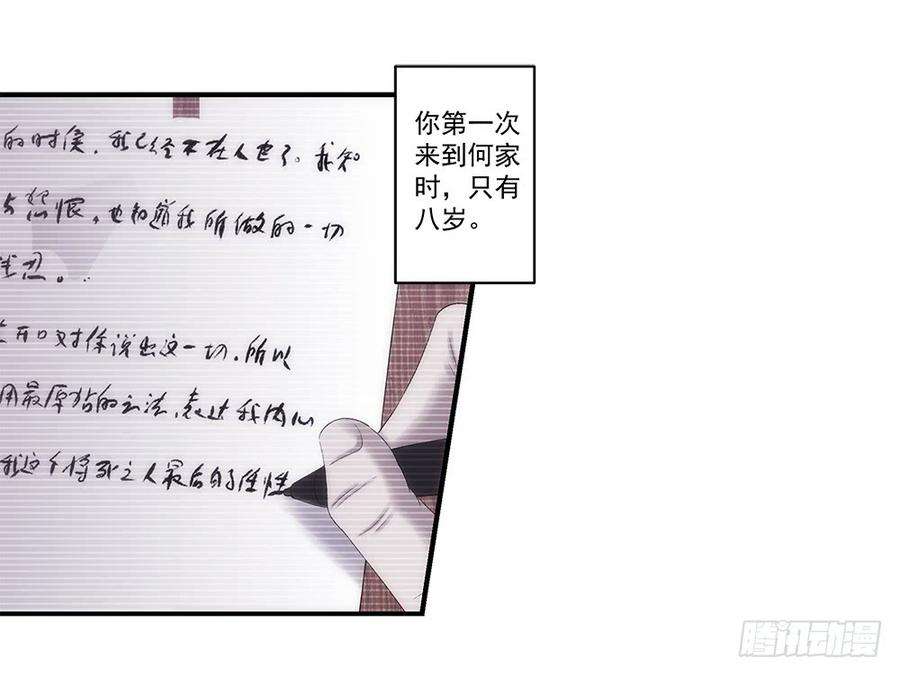 的时候，我已经不在人世了。我知
与怨恨，也知道我所做的一切
丑。
开口对你说出这一切，所以
用最原始的方法，表达我内心
我这个将死之人最后的任性
你第一次
来到何家
时，只有
八岁。
腾讯动漫